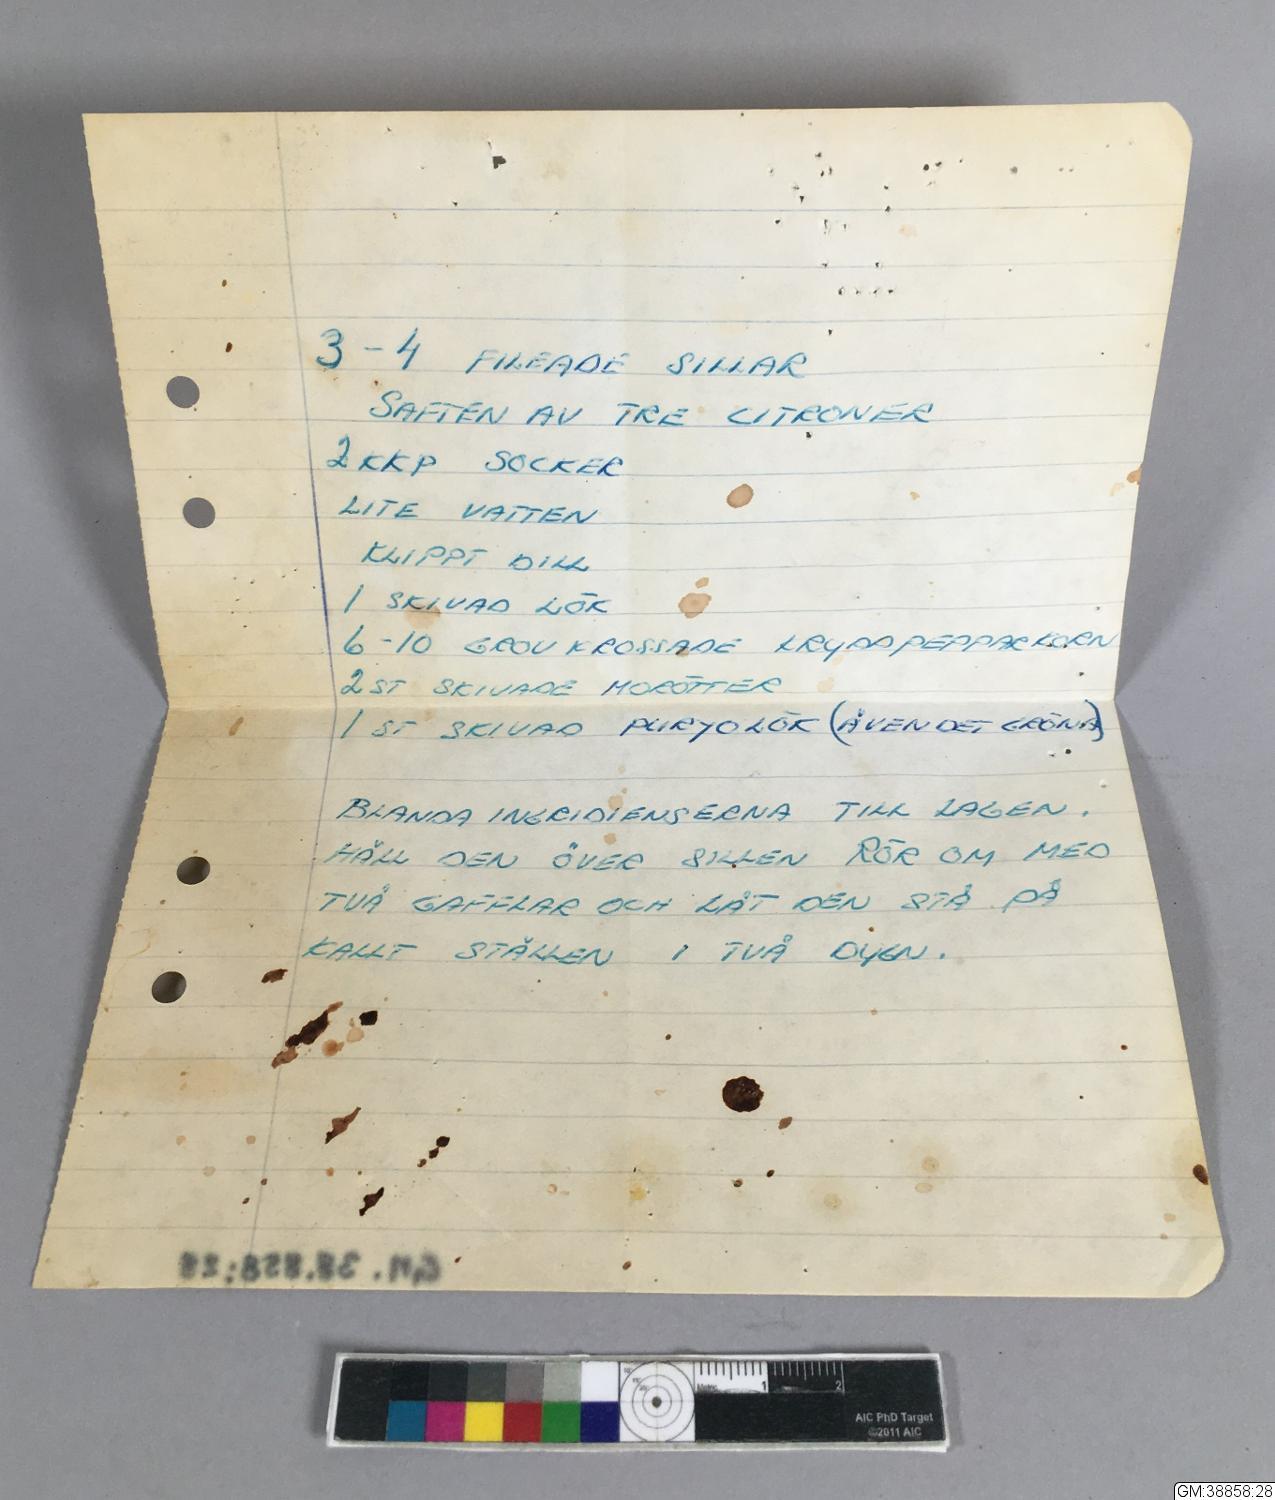 3-4 FILEADE SILLAR
SAFTEN AV TRE CITRONER
2 KKP SOCKER
LITE VATTEN
KLIPPT DILL
1 SKIVAD LÖK
6-10 GROV KROSSADE KRYDDPEPPARKORN
2 ST SKIVADE MORÖTTER
1 ST SKIVAD PURYOLÖK (ÄVEN DET GRÖNA)
BLANDA INGRIDIENSERNA TILL LAGEN.
HÄLL DEN ÖVER SILLEN RÖR OM MED
TVÅ GAFFLAR OCH LÅT DEN STÅ PÅ
KALLT STÄLLEN I TVÅ DYGN.
GM. 38.858:28
1 2
AIC PhD Target
©2011 AIC
GM:38858:28